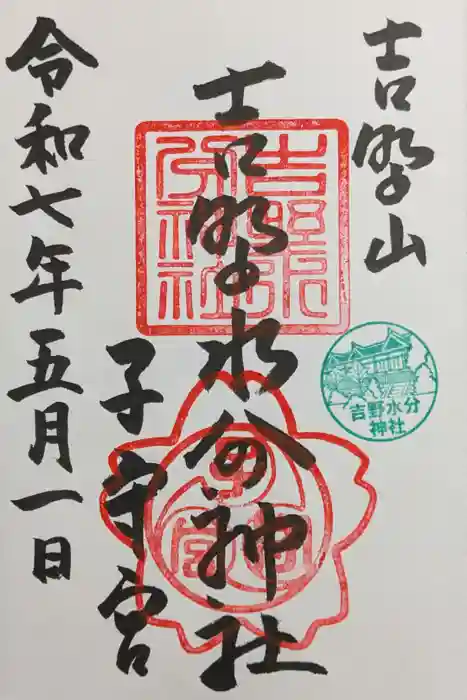 吉野山
吉野水分神社
子守宮
令和七年五月一日
吉野水分
神社
吉野水
分神社